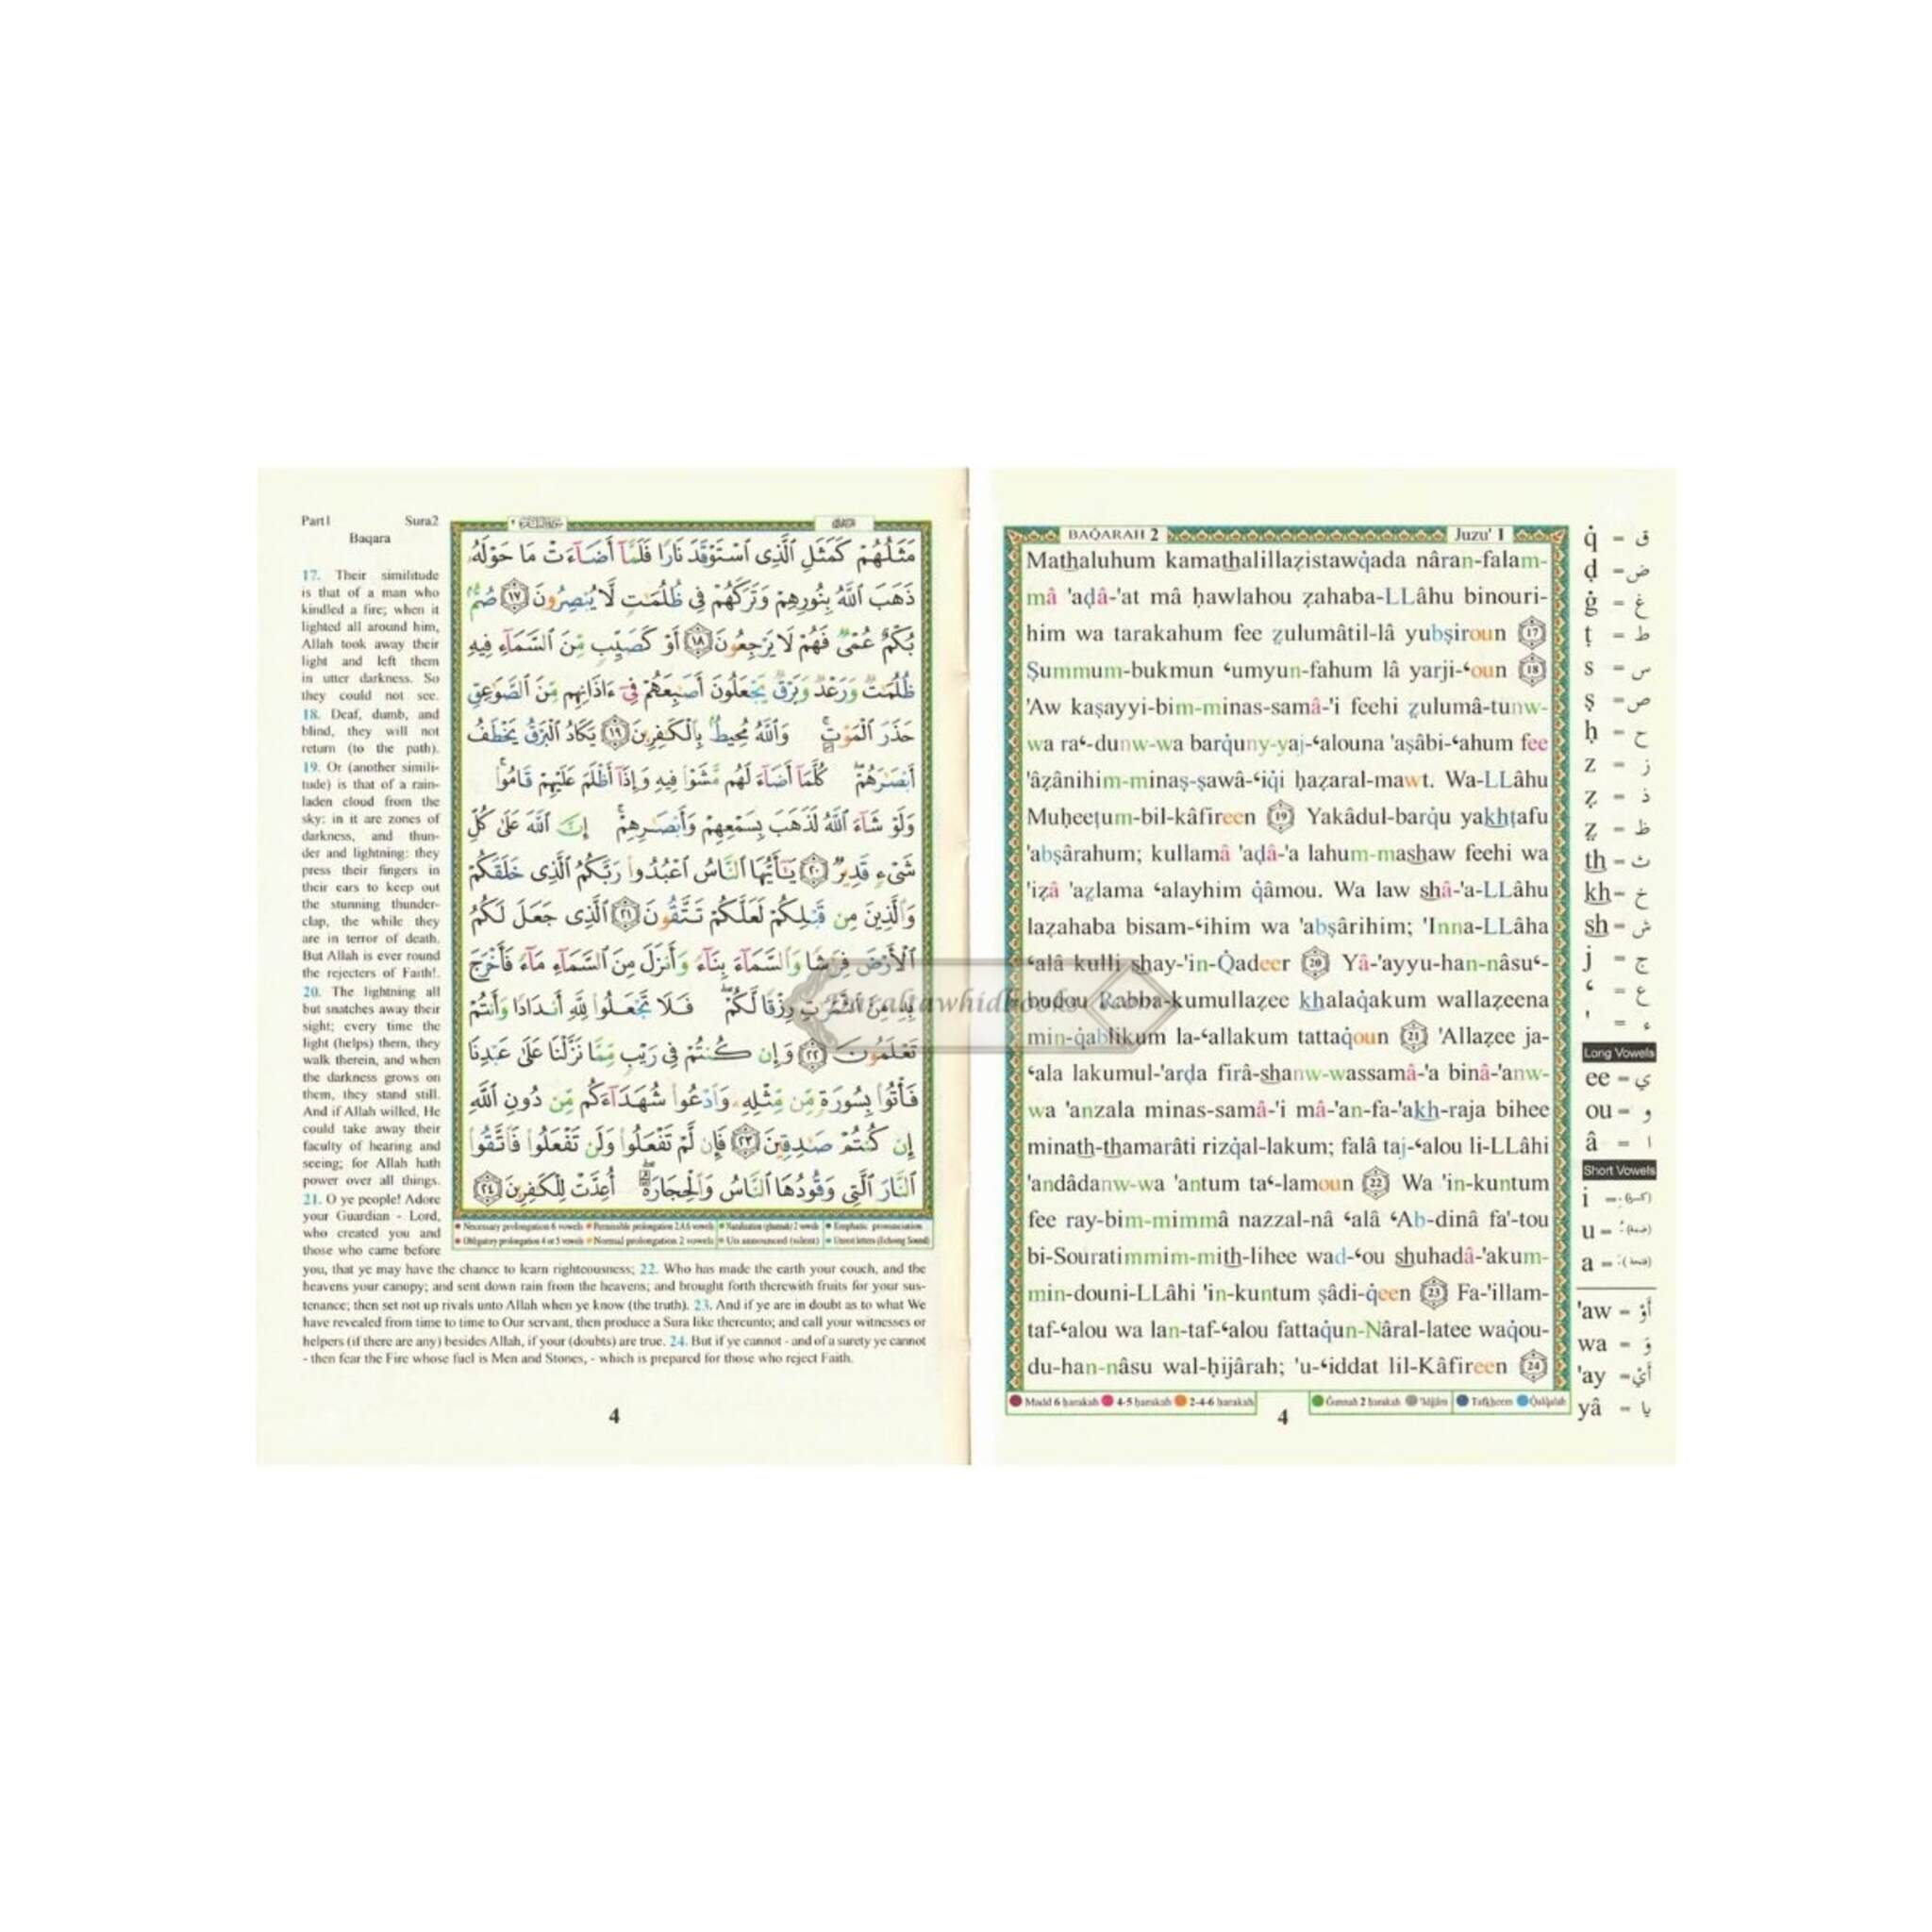 Part1 Sura2
Baqara
17. Their similitude
is that of a man who
kindled a fire; when it
lighted all around him,
Allah took away their
light and left them
in utter darkness. So
they could not see.
18. Deaf, dumb, and
blind, they will not
return (to the path).
19. Or (another simili-
tude) is that of a rain-
laden cloud from the
sky: in it are zones of
darkness, and thun-
der and lightning: they
press their fingers in
their ears to keep out
the stunning thunder-
clap, the while they
are in terror of death.
But Allah is ever round
the rejecters of Faith!.
20. The lightning all
but snatches away their
sight; every time the
light (helps) them, they
walk therein, and when
the darkness grows on
them, they stand still.
And if Allah willed, He
could take away their
faculty of hearing and
seeing; for Allah hath
power over all things.
21. O ye people! Adore
your Guardian - Lord,
who created you and
those who came before
you, that ye may have the chance to learn righteousness; 22. Who has made the earth your couch, and the
heavens your canopy; and sent down rain from the heavens; and brought forth therewith fruits for your sus-
tenance; then set not up rivals unto Allah when ye know (the truth). 23. And if ye are in doubt as to what We
have revealed from time to time to Our servant, then produce a Sura like thereunto; and call your witnesses or
helpers (if there are any) besides Allah, if your (doubts) are true. 24. But if ye cannot - and of a surety ye cannot
- then fear the Fire whose fuel is Men and Stones, - which is prepared for those who reject Faith.
مَثَلُهُمْ كَمَثَلِ ٱلَّذِى ٱسْتَوْقَدَ نَارًا فَلَمَّآ أَضَآءَتْ مَا حَوْلَهُۥ
ذَهَبَ ٱللَّهُ بِنُورِهِمْ وَتَرَكَهُمْ فِى ظُلُمَٰتٍ لَّا يُبْصِرُونَ ١٧ صُمٌّۢ
بُكْمٌ عُمْىٌ فَهُمْ لَا يَرْجِعُونَ ١٨ أَوْ كَصَيِّبٍ مِّنَ ٱلسَّمَآءِ فِيهِ
ظُلُمَٰتٌ وَرَعْدٌ وَبَرْقٌ يَجْعَلُونَ أَصَٰبِعَهُمْ فِىٓ ءَاذَانِهِم مِّنَ ٱلصَّوَٰعِقِ
حَذَرَ ٱلْمَوْتِ ۚ وَٱللَّهُ مُحِيطٌۢ بِٱلْكَٰفِرِينَ ١٩ يَكَادُ ٱلْبَرْقُ يَخْطَفُ
أَبْصَٰرَهُمْ ۖ كُلَّمَآ أَضَآءَ لَهُم مَّشَوْا۟ فِيهِ وَإِذَآ أَظْلَمَ عَلَيْهِمْ قَامُوا۟ ۚ
وَلَوْ شَآءَ ٱللَّهُ لَذَهَبَ بِسَمْعِهِمْ وَأَبْصَٰرِهِمْ ۚ إِنَّ ٱللَّهَ عَلَىٰ كُلِّ
شَىْءٍ قَدِيرٌ ٢٠ يَٰٓأَيُّهَا ٱلنَّاسُ ٱعْبُدُوا۟ رَبَّكُمُ ٱلَّذِى خَلَقَكُمْ
وَٱلَّذِينَ مِن قَبْلِكُمْ لَعَلَّكُمْ تَتَّقُونَ ٢١ ٱلَّذِى جَعَلَ لَكُمُ
ٱلْأَرْضَ فِرَٰشًا وَٱلسَّمَآءَ بِنَآءً وَأَنزَلَ مِنَ ٱلسَّمَآءِ مَآءً فَأَخْرَجَ
بِهِۦ مِنَ ٱلثَّمَرَٰتِ رِزْقًا لَّكُمْ ۖ فَلَا تَجْعَلُوا۟ لِلَّهِ أَندَادًا وَأَنتُمْ
تَعْلَمُونَ ٢٢ وَإِن كُنتُمْ فِى رَيْبٍ مِّمَّا نَزَّلْنَا عَلَىٰ عَبْدِنَا
فَأْتُوا۟ بِسُورَةٍ مِّن مِّثْلِهِۦ وَٱدْعُوا۟ شُهَدَآءَكُم مِّن دُونِ ٱللَّهِ
إِن كُنتُمْ صَٰدِقِينَ ٢٣ فَإِن لَّمْ تَفْعَلُوا۟ وَلَن تَفْعَلُوا۟ فَٱتَّقُوا۟
ٱلنَّارَ ٱلَّتِى وَقُودُهَا ٱلنَّاسُ وَٱلْحِجَارَةُ ۖ أُعِدَّتْ لِلْكَٰفِرِينَ ٢٤
Necessary prolongation 6 vowels Permissible prolongation 2,4,6 vowels Nazalization (ghunnah) 2 vowels Emphatic pronunciation
Obligatory prolongation 4 or 5 vowels Normal prolongation 2 vowels Un announced (silent) Unrest letters (Echoing Sound)
4
BAQ̇ARAH 2 Juzu' 1
Mathaluhum kamathalillaẓistawq̇ada nâran-falam-
mâ 'aḍâ-'at mâ ḥawlahou ẓahaba-LLâhu binouri-
him wa tarakahum fee ẓulumâtil-lâ yubṣiroun 17
Ṣummum-bukmun ‘umyun-fahum lâ yarji-‘oun 18
'Aw kaṣayyi-bim-minas-samâ-'i feehi ẓulumâ-tunw-
wa ra‘-dunw-wa barq̇uny-yaj-‘alouna 'aṣâbi-‘ahum fee
'âẓânihim-minaṣ-ṣawâ-‘iq̇i ḥaẓaral-mawt. Wa-LLâhu
Muḥeeṭum-bil-kâfireen 19 Yakâdul-barq̇u yakhṭafu
'abṣârahum; kullamâ 'aḍâ-'a lahum-mashaw feehi wa
'iẓâ 'aẓlama ‘alayhim q̇âmou. Wa law shâ-'a-LLâhu
laẓahaba bisam-‘ihim wa 'abṣârihim; 'Inna-LLâha
‘alâ kulli shay-'in-Q̇adeer 20 Yâ-'ayyu-han-nâsu‘-
budou Rabba-kumullaẓee khalaq̇akum wallaẓeena
min-q̇ablikum la-‘allakum tattaq̇oun 21 'Allaẓee ja-
‘ala lakumul-'arḍa firâ-shanw-wassamâ-'a binâ-'anw-
wa 'anzala minas-samâ-'i mâ-'an-fa-'akh-raja bihee
minath-thamarâti rizq̇al-lakum; falâ taj-‘alou li-LLâhi
'andâdanw-wa 'antum ta‘-lamoun 22 Wa 'in-kuntum
fee ray-bim-mimmâ nazzal-nâ ‘alâ ‘Ab-dinâ fa'-tou
bi-Souratimmim-mith-lihee wad-‘ou shuhadâ-'akum-
min-douni-LLâhi 'in-kuntum ṣâdi-q̇een 23 Fa-'illam-
taf-‘alou wa lan-taf-‘alou fattaq̇un-Nâral-latee waq̇ou-
du-han-nâsu wal-ḥijârah; 'u-‘iddat lil-Kâfireen 24
Madd 6 ḥarakah 4-5 ḥarakah 2-4-6 ḥarakah Ġunnah 2 ḥarakah Tafkheem Q̇alq̇alah
4
q̇ = ق
ḍ = ض
ġ = غ
ṭ = ط
s = س
ṣ = ص
ḥ = ح
z = ز
ẓ = ذ
ẓ = ظ
th = ث
kh = خ
sh = ش
j = ج
‘ = ع
' = ء
Long Vowels
ee = ي
ou = و
â = ا
Short Vowels
i = (كسرة)
u = (ضمة)
a = (فتحة)
'aw = أَوْ
wa = وَ
'ay = أَيْ
yâ = يا
Daraltawhidbooks